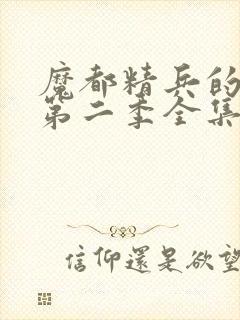 魔都精兵的
第二季全集
信仰還是欲望